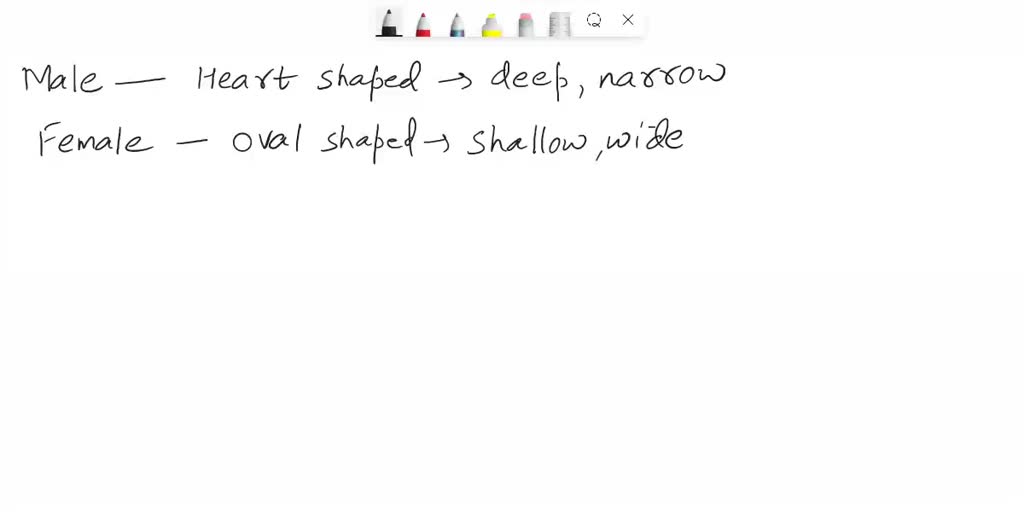 Male — Heart shaped → deep, narrow
Female — Oval shaped → shallow, wide